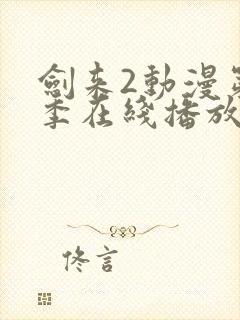 劍来2動漫
季在綫播放
佟言